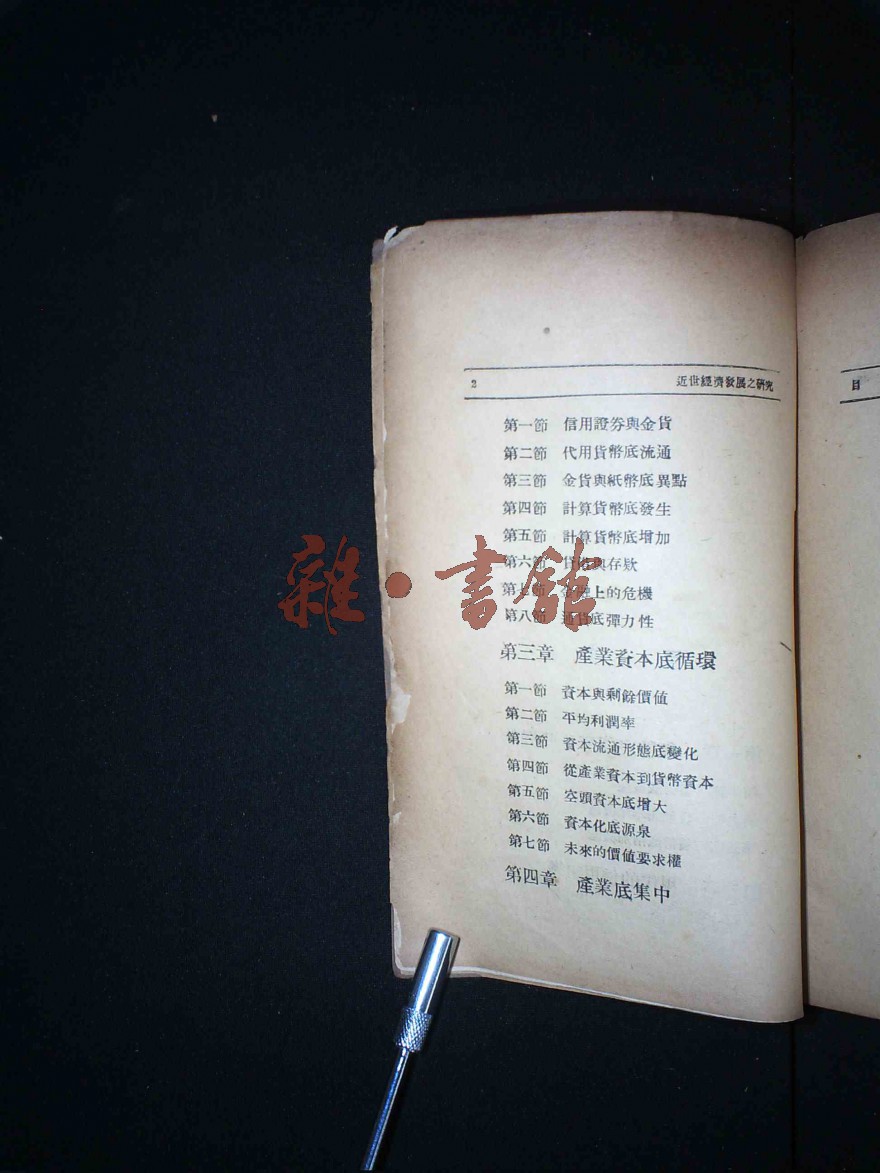 2 近世經濟發展之研究
第一節 信用證券與金貨
第二節 代用貨幣底流通
第三節 金貨與紙幣底異點
第四節 計算貨幣底發生
第五節 計算貨幣底增加
第六節 與存欵
第七節 上的危機
第八節 通貨底彈力性
第三章 產業資本底循環
第一節 資本與剩餘價值
第二節 平均利潤率
第三節 資本流通形態底變化
第四節 從產業資本到貨幣資本
第五節 空頭資本底增大
第六節 資本化底源泉
第七節 未來的價值要求權
第四章 產業底集中
目
雜·書館